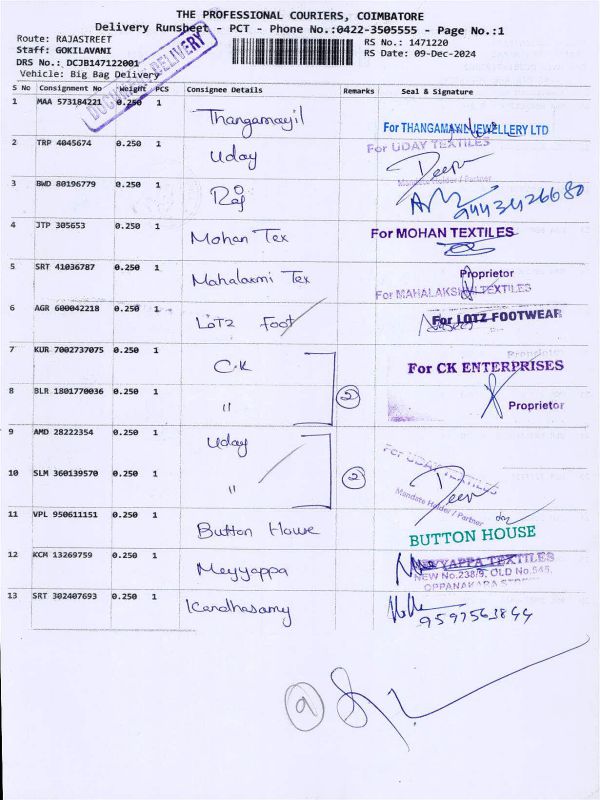 THE PROFESSIONAL COURIERS, COIMBATORE
Delivery Runsheet - PCT - Phone No.:0422-3505555 - Page No.:1
Route: RAJASTREET
RS No.: 1471220
Staff: GOKILAVANI
RS Date: 09-Dec-2024
DRS No.: DCJB147122001
Vehicle: Big Bag Delivery
DOCUMENT DELIVERY
S No Consignment No Weight PCS Consignee Details Remarks Seal & Signature
1 MAA 573184221 0.250 1 Thangamayil For THANGAMAYIL JEWELLERY LTD
2 TRP 4045674 0.250 1 Uday For UDAY TEXTILES
Deepa
Mandate Holder / Partner
3 BWD 80196779 0.250 1 Raj 9443426680
4 JTP 305653 0.250 1 Mohan Tex For MOHAN TEXTILES
Proprietor
5 SRT 41036787 0.250 1 Mahalaxmi Tex For MAHALAKSHMI TEXTILES
6 AGR 600042218 0.250 1 LOTZ Foot For LOTZ FOOTWEAR
Proprietor
7 KUR 7002737075 0.250 1 C.K For CK ENTERPRISES
8 BLR 1801770036 0.250 1 " 2 Proprietor
9 AMD 28222354 0.250 1 Uday For UDAY TEXTILES
10 SLM 360139570 0.250 1 " 2 Deepa
Mandate Holder / Partner
11 VPL 950611151 0.250 1 Button House BUTTON HOUSE
12 KCM 13269759 0.250 1 Meyyappa MEYYAPPA TEXTILES
NEW No.238/9, OLD No.545,
OPPANAKARA STREET
13 SRT 302407693 0.250 1 Kandhasamy 9597563844
9